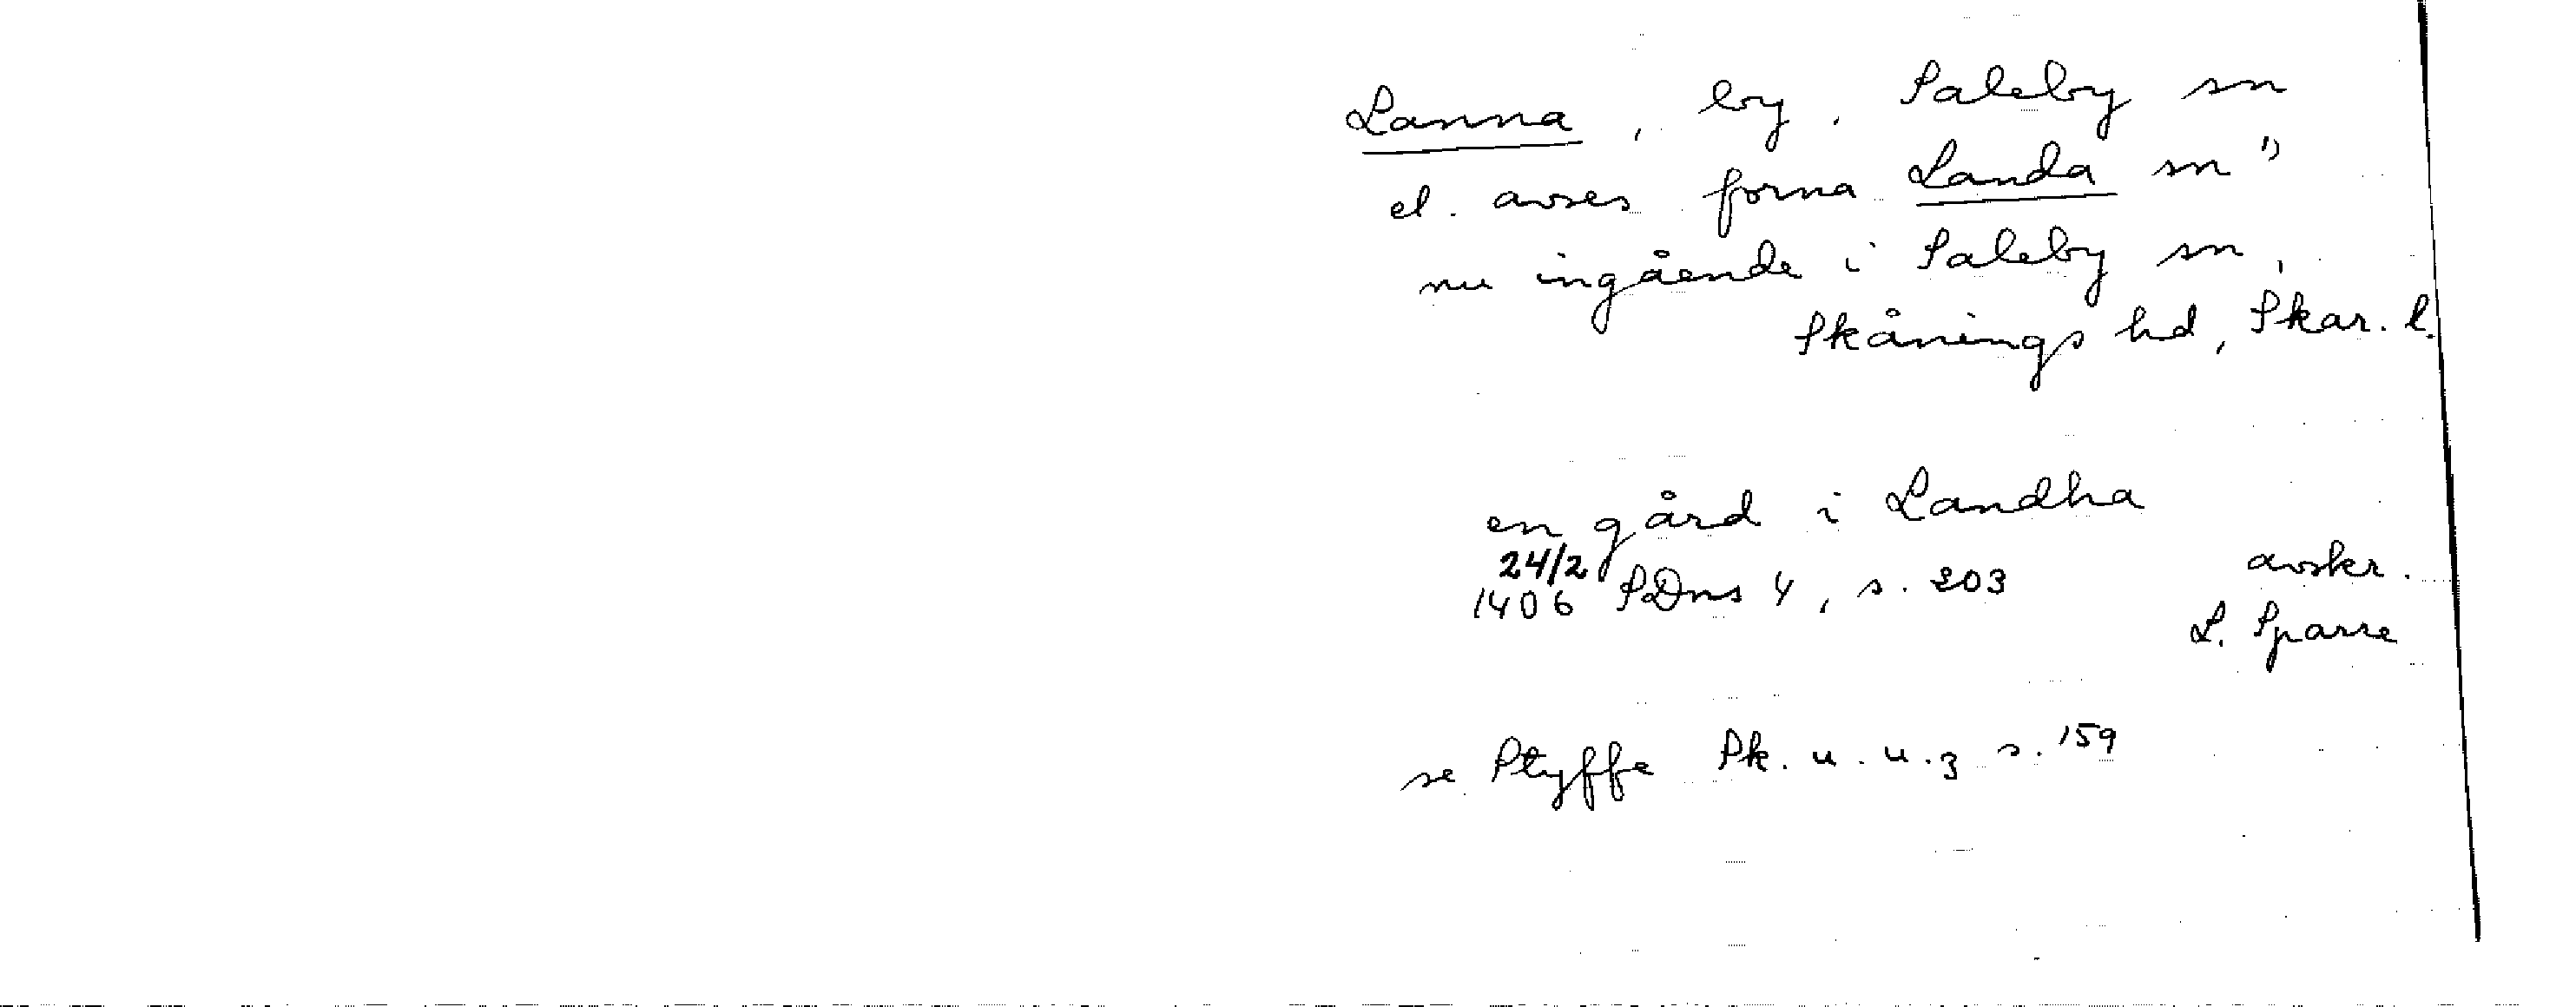 Lanna, by, Saleby sn
el. avses forna Landa sn 1)
nu ingående i Saleby sn,
Skånings hd, Skar. l.
en gård i Landha
24/2
1406 SDns 4, s. 203 avskr.
L. Sparre
se Styffe Sk. u. u. 3 s. 159